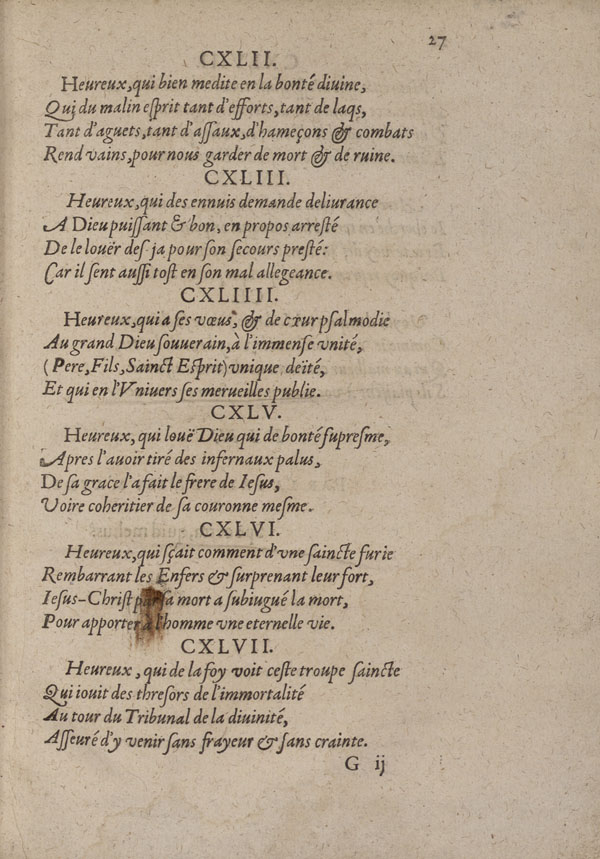 27
CXLII.
Heureux, qui bien medite en la bonté diuine,
Qui du malin esprit tant d'efforts, tant de laqs,
Tant d'aguets, tant d'assaux, d'hameçons & combats
Rend vains, pour nous garder de mort & de ruine.
CXLIII.
Heureux, qui des ennuis demande deliurance
A Dieu puissant & bon, en propos arresté
De le louër des-ja pour son secours presté:
Car il sent aussi tost en son mal allegeance.
CXLIIII.
Heureux, qui a ses vœus, & de cœur psalmodie
Au grand Dieu souuerain, à l'immense vnité,
(Pere, Fils, Sainct Esprit) vnique deïté,
Et qui en l'Vniuers ses merueilles publie.
CXLV.
Heureux, qui louë Dieu qui de bonté supresme,
Apres l'auoir tiré des infernaux palus,
De sa grace l'a fait le frere de Iesus,
Voire coheritier de sa couronne mesme.
CXLVI.
Heureux, qui sçait comment d'vne saincte furie
Rembarrant les Enfers & surprenant leur fort,
Iesus-Christ par sa mort a subiugué la mort,
Pour apporter à l'homme vne eternelle vie.
CXLVII.
Heureux, qui de la foy voit ceste troupe saincte
Qui iouit des thresors de l'immortalité
Au tour du Tribunal de la diuinité,
Asseuré d'y venir sans frayeur & sans crainte.
G ij